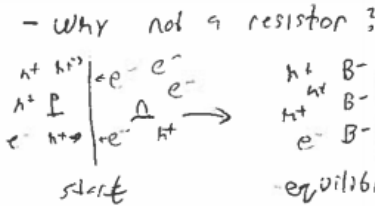 - why not a resistor?
h+ h+ e- e-
h+ P e-
e- h+ e- n h+
h+ B-
h+
h+ B-
e- B-
start equilib